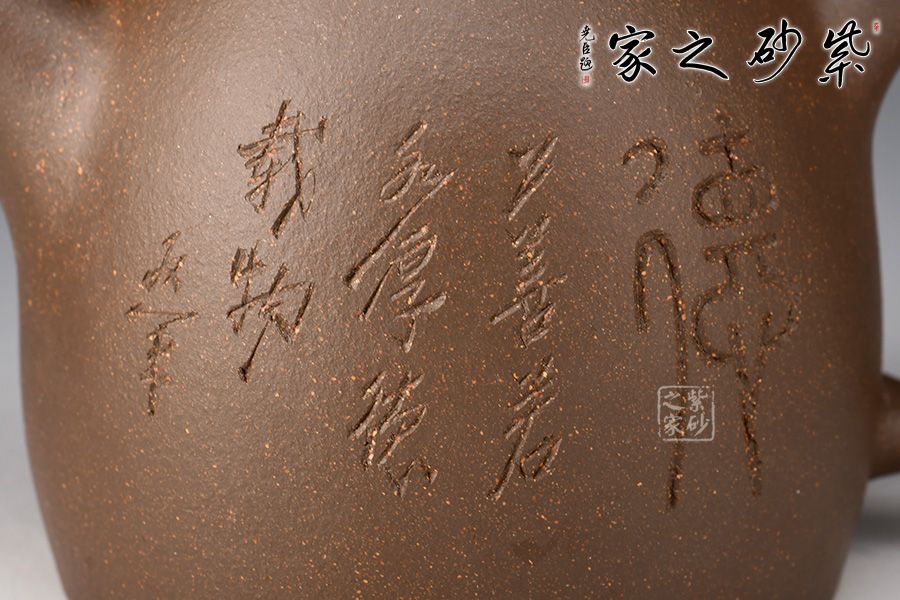 紫砂之家
尧臣题
上善若
水厚德
載物
紫砂之家